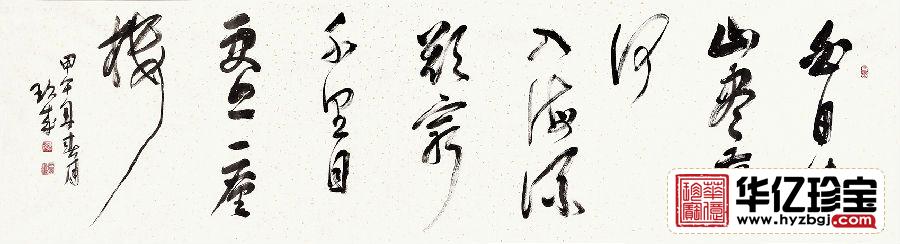 白日依
山尽黄
河
入海流
欲穷
千里目
更上一层
楼
甲午年春月
华亿珍宝
www.hyzbgj.com